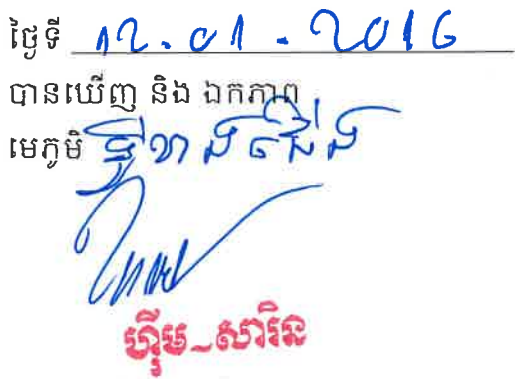 ថ្ងៃទី 12.01-2016
បានឃើញ និង ឯកភាព
មេភូមិ
ហ៊ឹម_សារិន